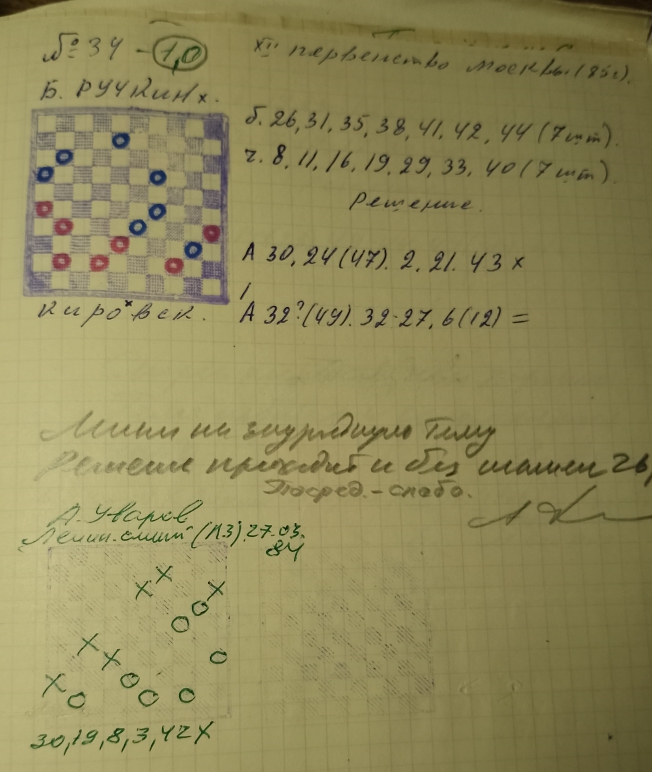 № 34 - 1,0
XII первенство Москвы (85г).
Б. РУЧКИН х.
б. 26, 31, 35, 38, 41, 42, 44 (7 шт).
ч. 8, 11, 16, 19, 29, 33, 40 (7 шт).
Решение.
А 30, 24 (47). 2. 21. 43 х
А 32? (49). 32-27, 6 (12) =
КИРОВСК.
Мини на заурядную тему
Решение проходит и без шашки 26,
Посред. - слабо.
А. Уваров
(ЛЗ) 27.03.
84
30, 19, 8, 3, 42 Х